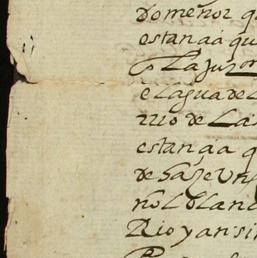 do menor q
estançia qu
La juzon
e Lagua de L
rrio de La
estançia q
de Sase Un
nol blanc
Rio y ansi